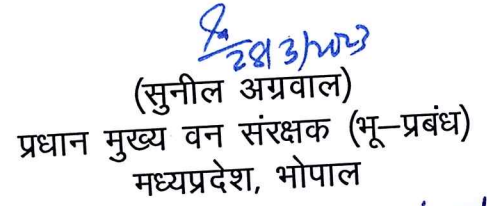 28/3/2023
(सुनील अग्रवाल)
प्रधान मुख्य वन संरक्षक (भू–प्रबंध)
मध्यप्रदेश, भोपाल